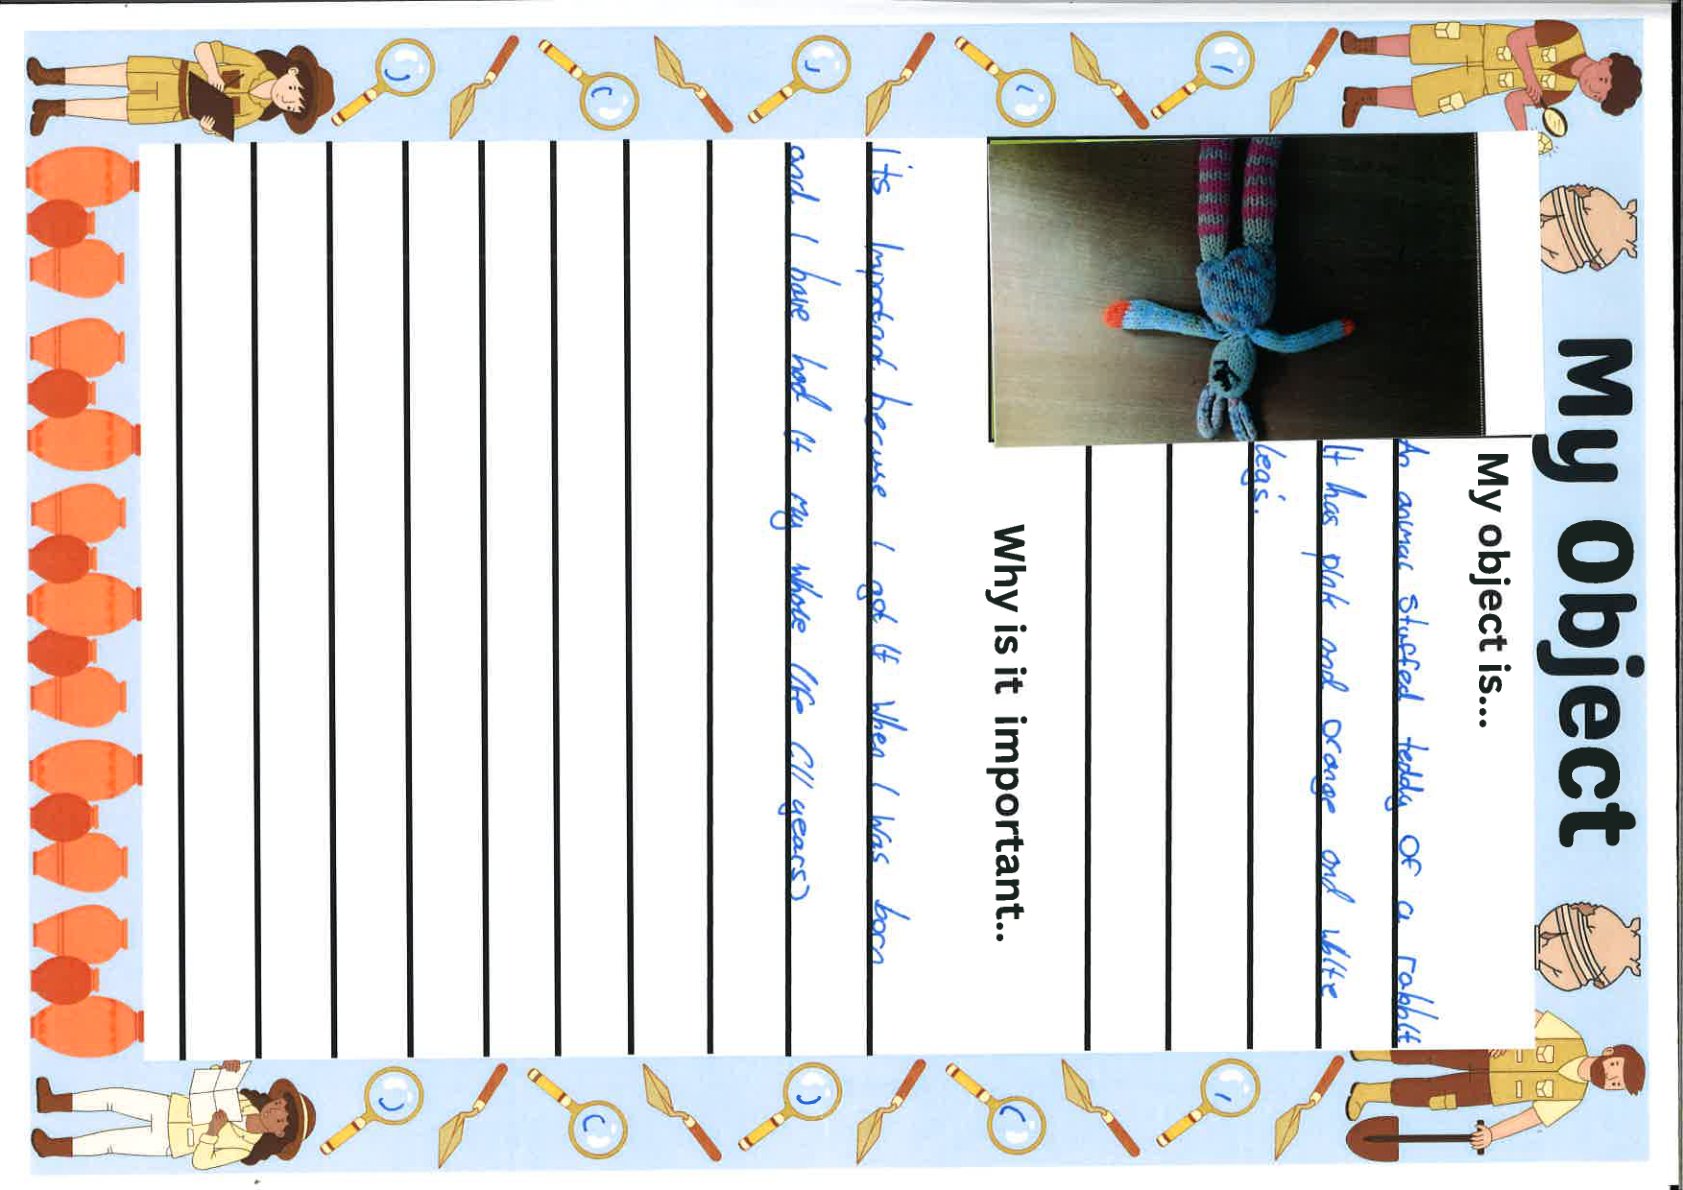 My Object
My object is...
An animal stuffed teddy of a rabbit
It has pink and orange and white
legs.
Why is it important..
It's Important becuse I got it when I was born
and I have had it my whole life (11 years)